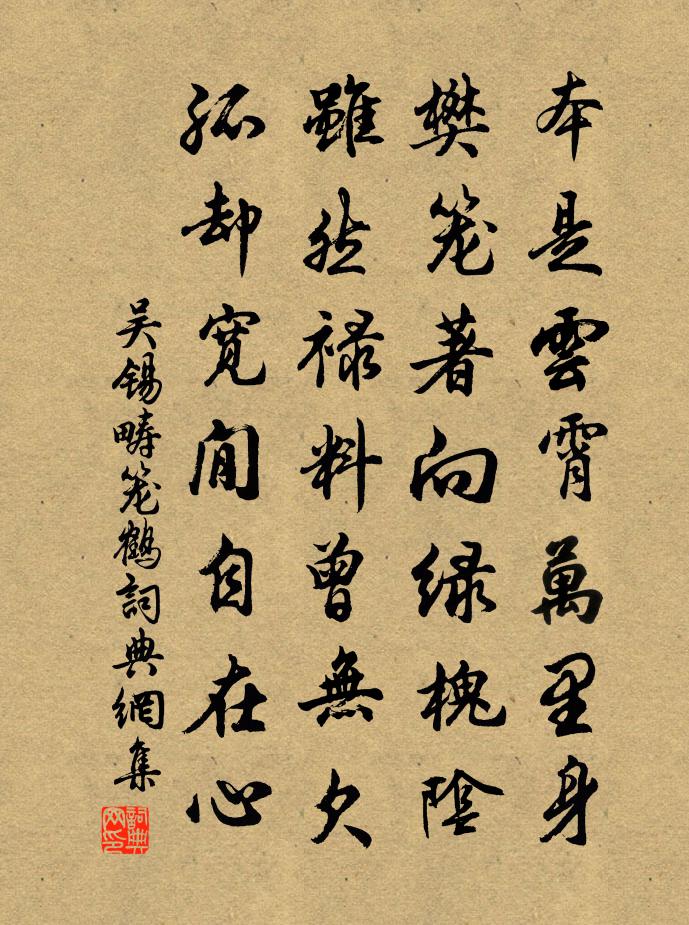 本是雲霄萬里身
樊笼著向緑槐陰
雖然禄料曾無欠
孤却寛閒自在心
吴錫疇笼鶴詞典網集
詞典網印